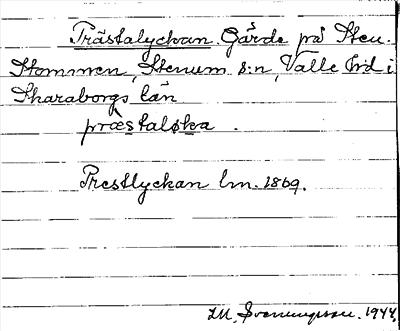 Prästalyckan. Gärde på Sten.
Stommen, Stenum s:n, Valle hd i
Skaraborgs län
præstaløka.
Prestlyckan lm. 1869.
1944.